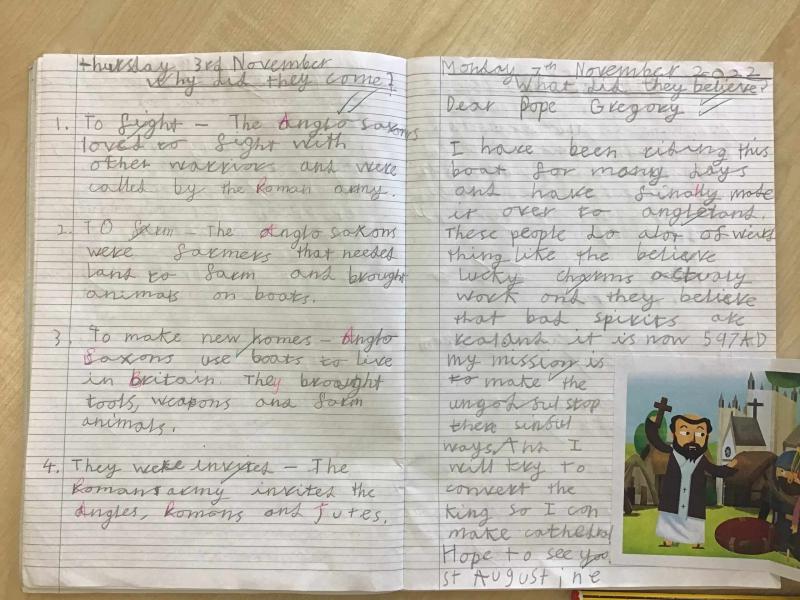 thursday 3rd November
Why did they come?
1. To fight - The Anglo saxons
loved to fight with
other warriors and were
called by the Roman army.
2. TO farm - The Anglo saxons
were farmers that needed
land to farm and brought
animals on boats.
3. To make new homes - Anglo
Saxons use boats to live
in Britain. They brought
tools, weapons and farm
animals.
4. They were invited - The
Romans army invited the
Angles, Romans and Jutes.
Monday 7th November 2022
What did they believe?
Dear Pope Gregory
I have been riding this
boat for many days
and have finally made
it over to angleland.
These people do alot of weird
thing like the believe
lucky charms actualy
work and they believe
that bad spirits are
real and it is now 597AD
my mission is
to make the
ungodful stop
there sinful
ways. And I
will try to
convert the
king so I can
make cathedral
Hope to see you.
st Augustine